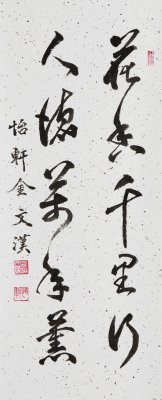 花香千里行
人德萬年薰
怡軒金文漢